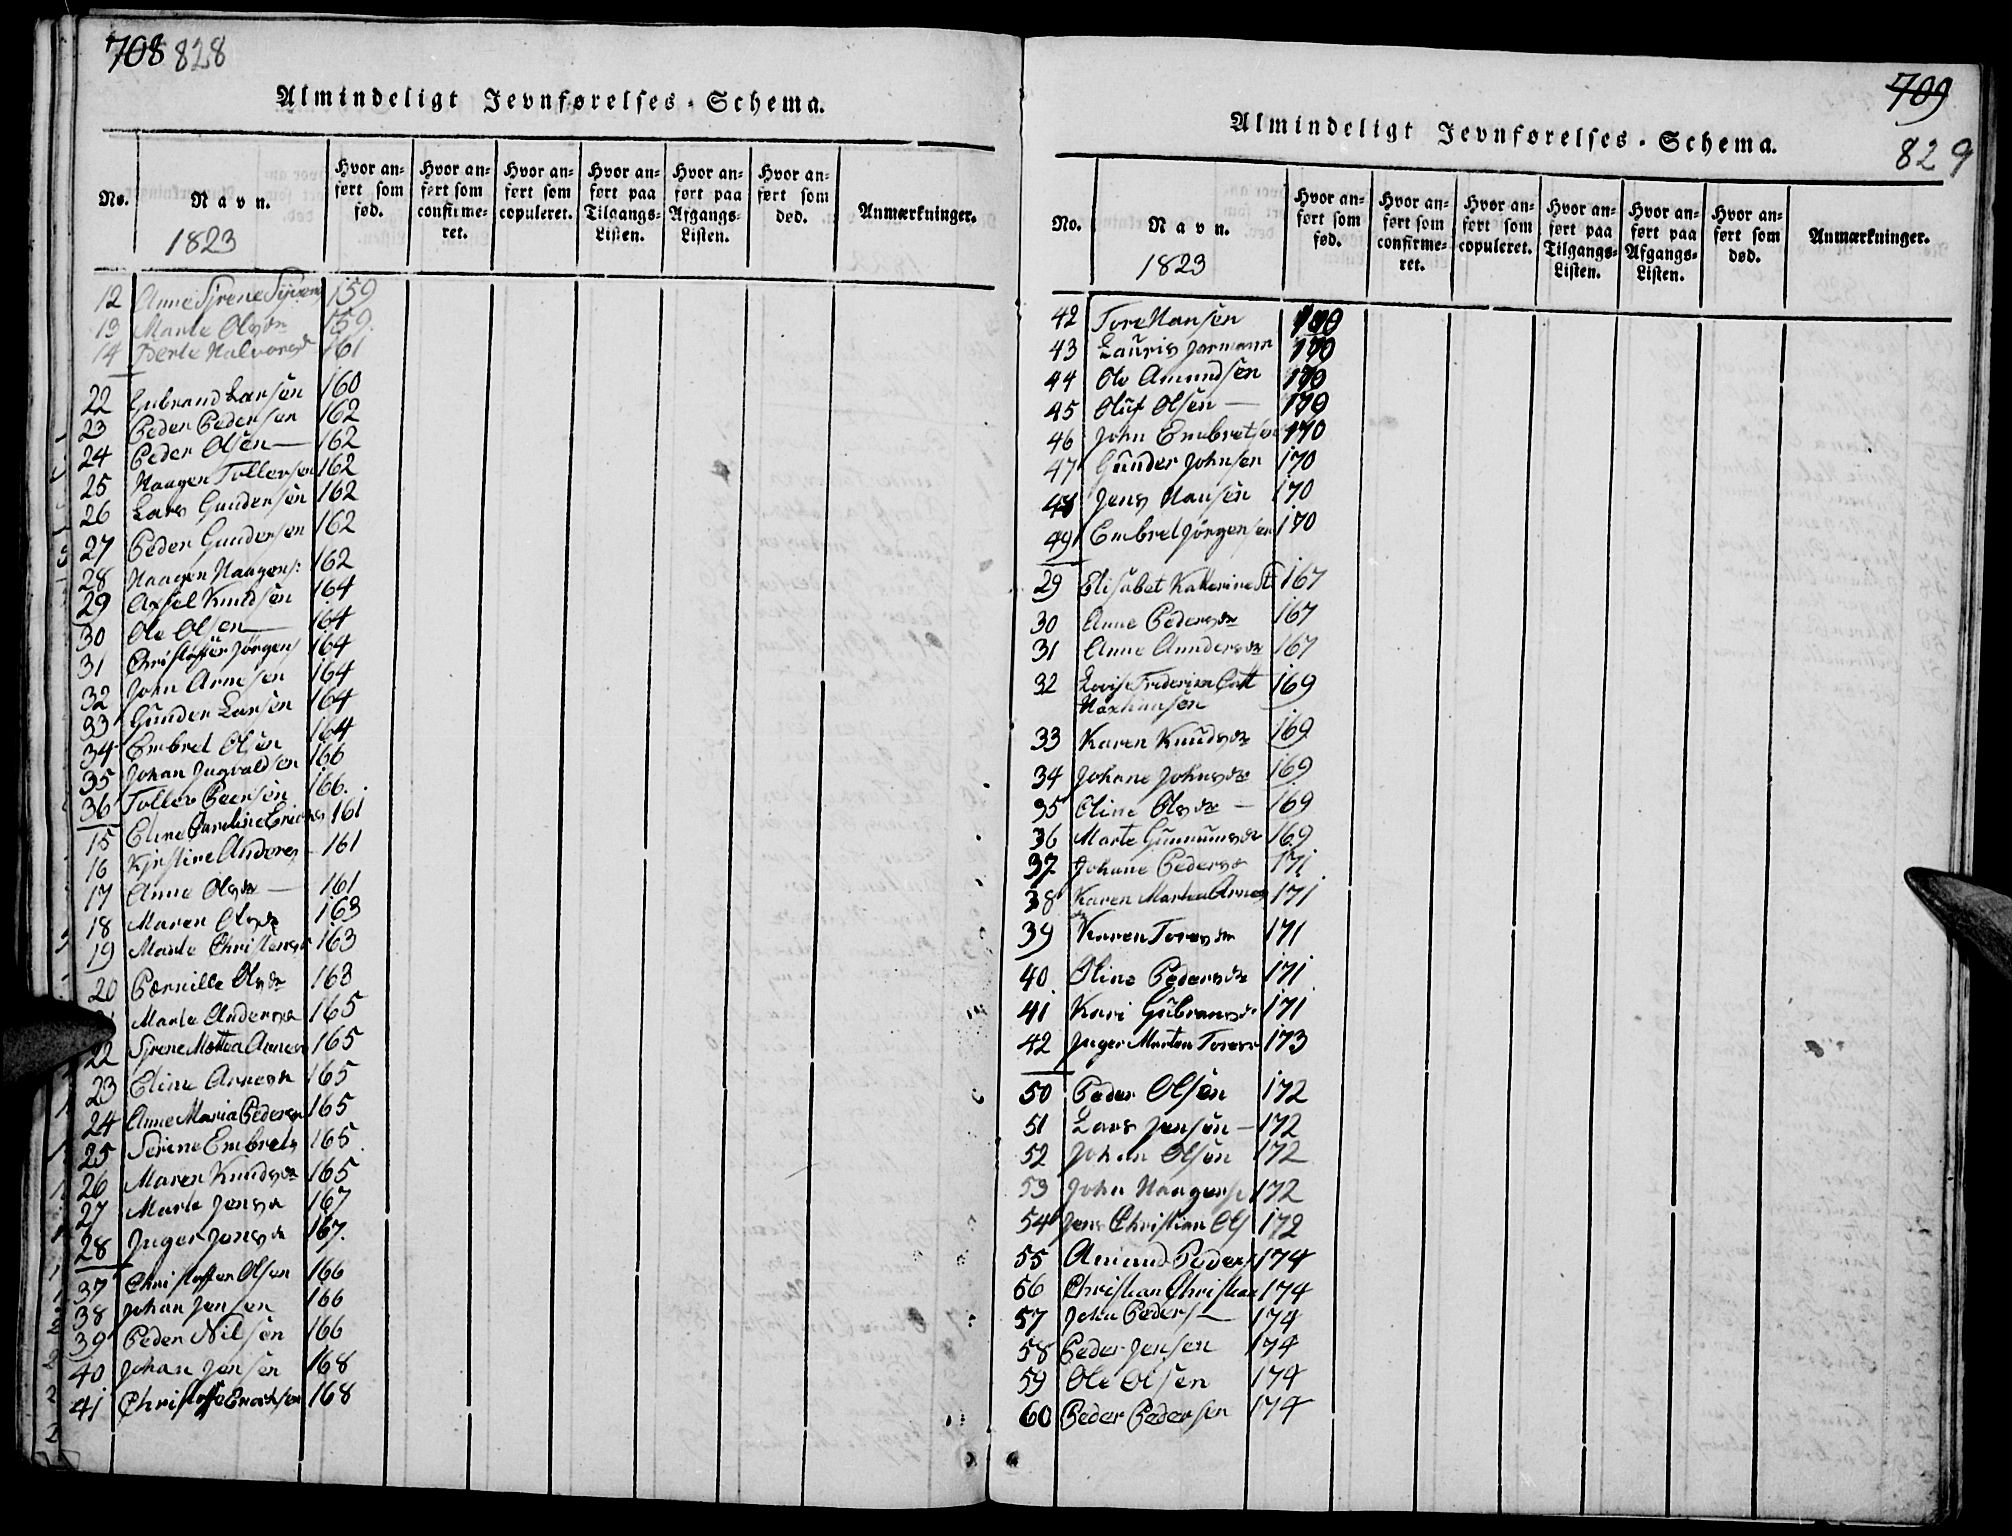 708 828
Almindeligt Jevnførelses-Schema.
No.
Navn.
1823
Hvor anført som fød.
Hvor anført som confirmeret.
Hvor anført som copuleret.
Hvor anført paa Tilgangs-Listen.
Hvor anført paa Afgangs-Listen.
Hvor anført som død.
Anmærkninger.
12 Anne Sjrene Syvers 159
13 Marte Olsdr 159.
14 Berte Halvorsd 161
22 Gubrand Larsen 160
23 Peder Pedersen 162
24 Peder Olsen — 162
25 Haagen Tollersen 162
26 Lars Gundersen 162
27 Peder Gundersen 162
28 Haagen Haagens: 162
29 Axsel Knudsen 164
30 Ole Olsen — 164
31 Christoffer Jørgens 164
32 John Arnesen 164
33 Gunder Larsen 164
34 Embret Olsen 164
35 Johan Ingvaldsen 166
36 Tollev Peersen 166.
15 Eline Caroline Erichs 161
16 Kjrstine Anders 161
17 Anne Olsdr — 161
18 Maren Olsdr 163
19 Marte Christensd 163
20 Pernille Olsdr 163
Marte Andersdr 165
22 Sjrene Mattea Arnesd 165
23 Eline Arnesdr 165
24 Anne Maria Pedersd 165
25 Serine Embrets 165
26 Maren Knudsdr 165
27 Marte Jensdr 167
28 Inger Jensdr 167.
37 Christoffer Olsen 166
38 Johan Jensen 166
39 Peder Nilsen 166
40 Johan Jensen 168
41 Christoffe Erichsen 168
709
829
Almindeligt Jevnførelses-Schema.
No.
Navn.
1823
Hvor anført som fød.
Hvor anført som confirmeret.
Hvor anført som copuleret.
Hvor anført paa Tilgangs-Listen.
Hvor anført paa Afgangs-Listen.
Hvor anført som død.
Anmærkninger.
42 Tore Hansen 170
43 Lauris Jormann 170
44 Ole Amundsen 170
45 Oluf Olsen — 170
46 John Embretsen 170
47 Gunder Johnsen 170
48 Jens Hansen 170
49 Embret Jørgensen 170
29 Elisabet Katterine St 167
30 Anne Pedersdr 167
31 Anne Andersdr 167
32 Lovise Frederica Catt 169
Haxthausen
33 Karen Knudsdr 169
34 Johane Johnsdr 169
35 Eline Olsdr — 169
36 Marte Gunmunsdr 169
37 Johane Pedersdr 171
38 Karen Marthea Arnes 171
39 Karen Toresdr 171
40 Oline Pedersdr 171
41 Kari Gubransdr 171
42 Inger Martea Toresd 173
50 Peder Olsen 172
51 Lars Jensen — 172
52 Johan Olsen 172
53 John Haagense 172
54 Jens Christian Ols 172
55 Amund Peders 174
56 Christian Christian 174
57 John Peders — 174
58 Peder Jensen 174
59 Ole Olsen 174
60 Peder Pedersen 174